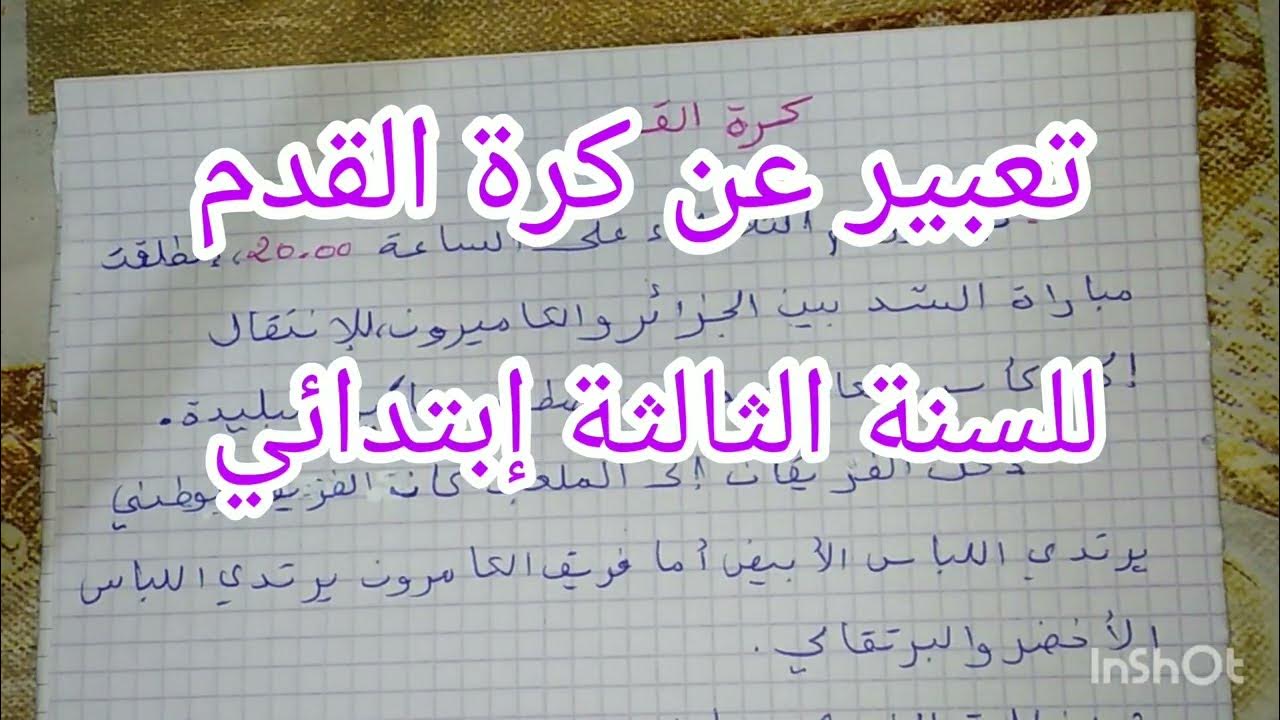 كرة القـ
تعبير عن كرة القدم
على الساعة 20.00، إنطلقت
مباراة السد بين الجزائر والكاميرون، للإنتقال
للسنة الثالثة إبتدائي
دخل الفريقان إلى الملعب كان الفريق الوطني
يرتدي اللباس الأبيض أما فريق الكامرون يرتدي اللباس
الأخضر والبرتقالي.
InShOt